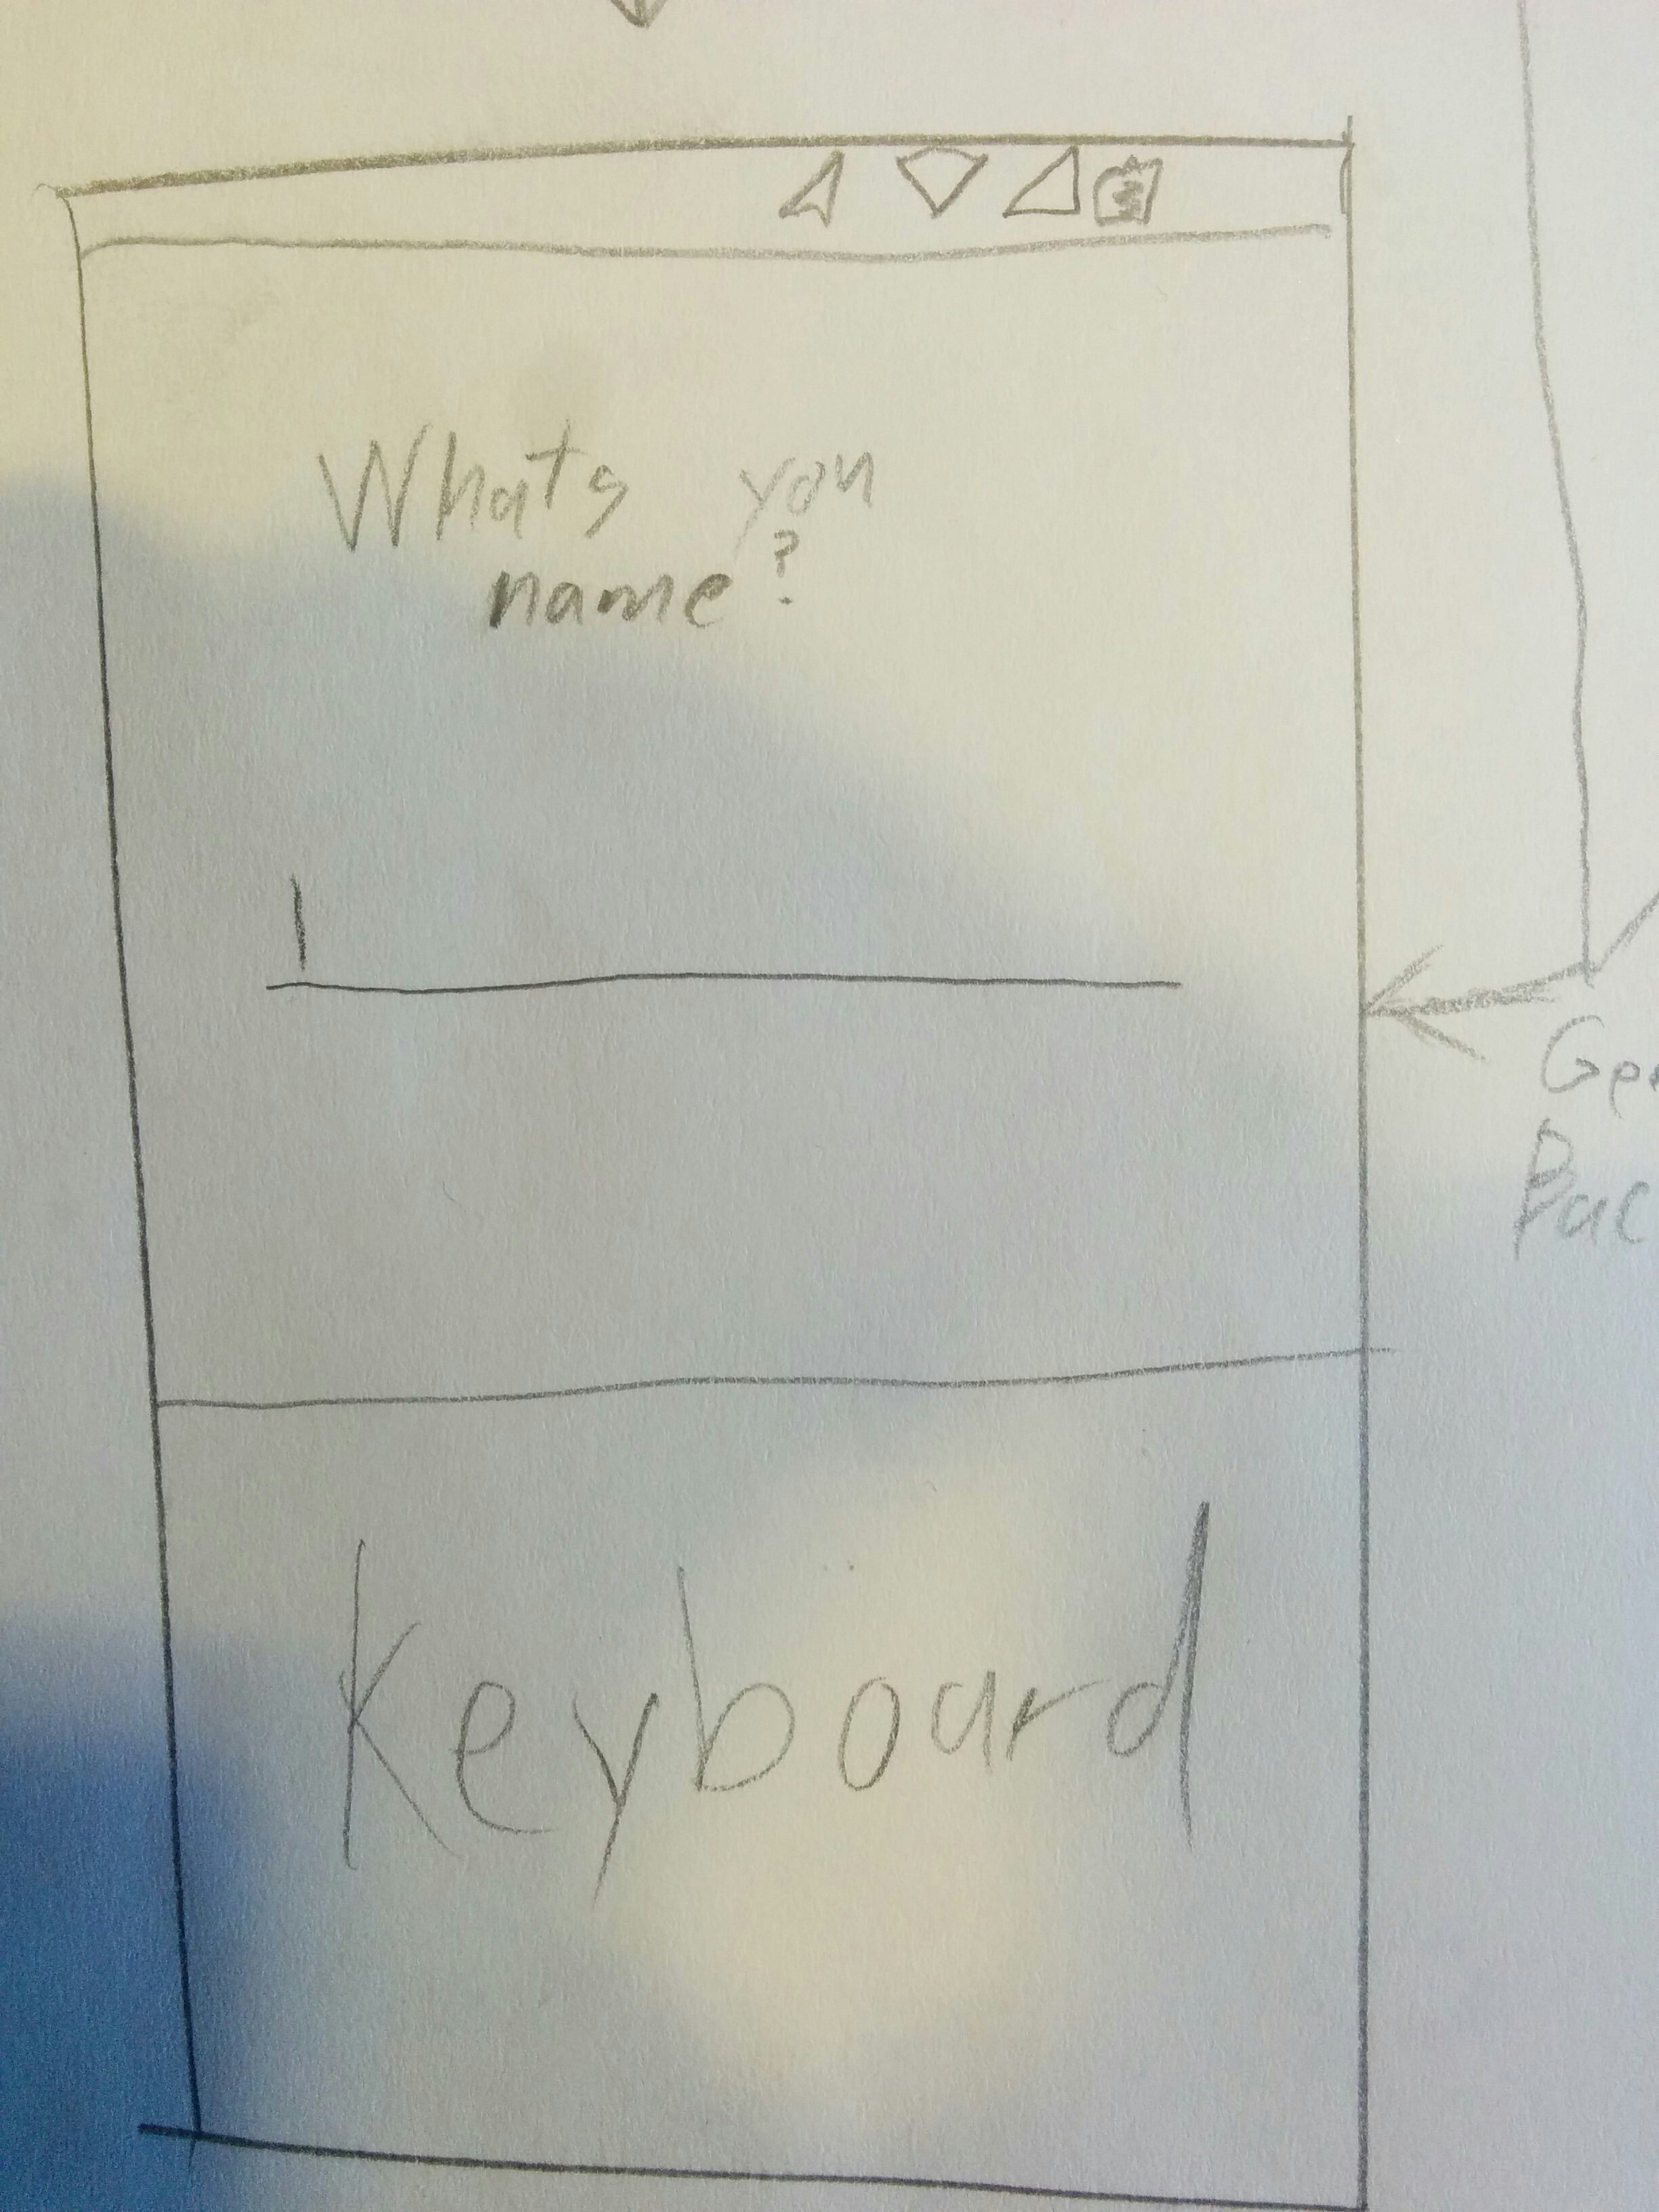 Whats you
name?
Keyboard